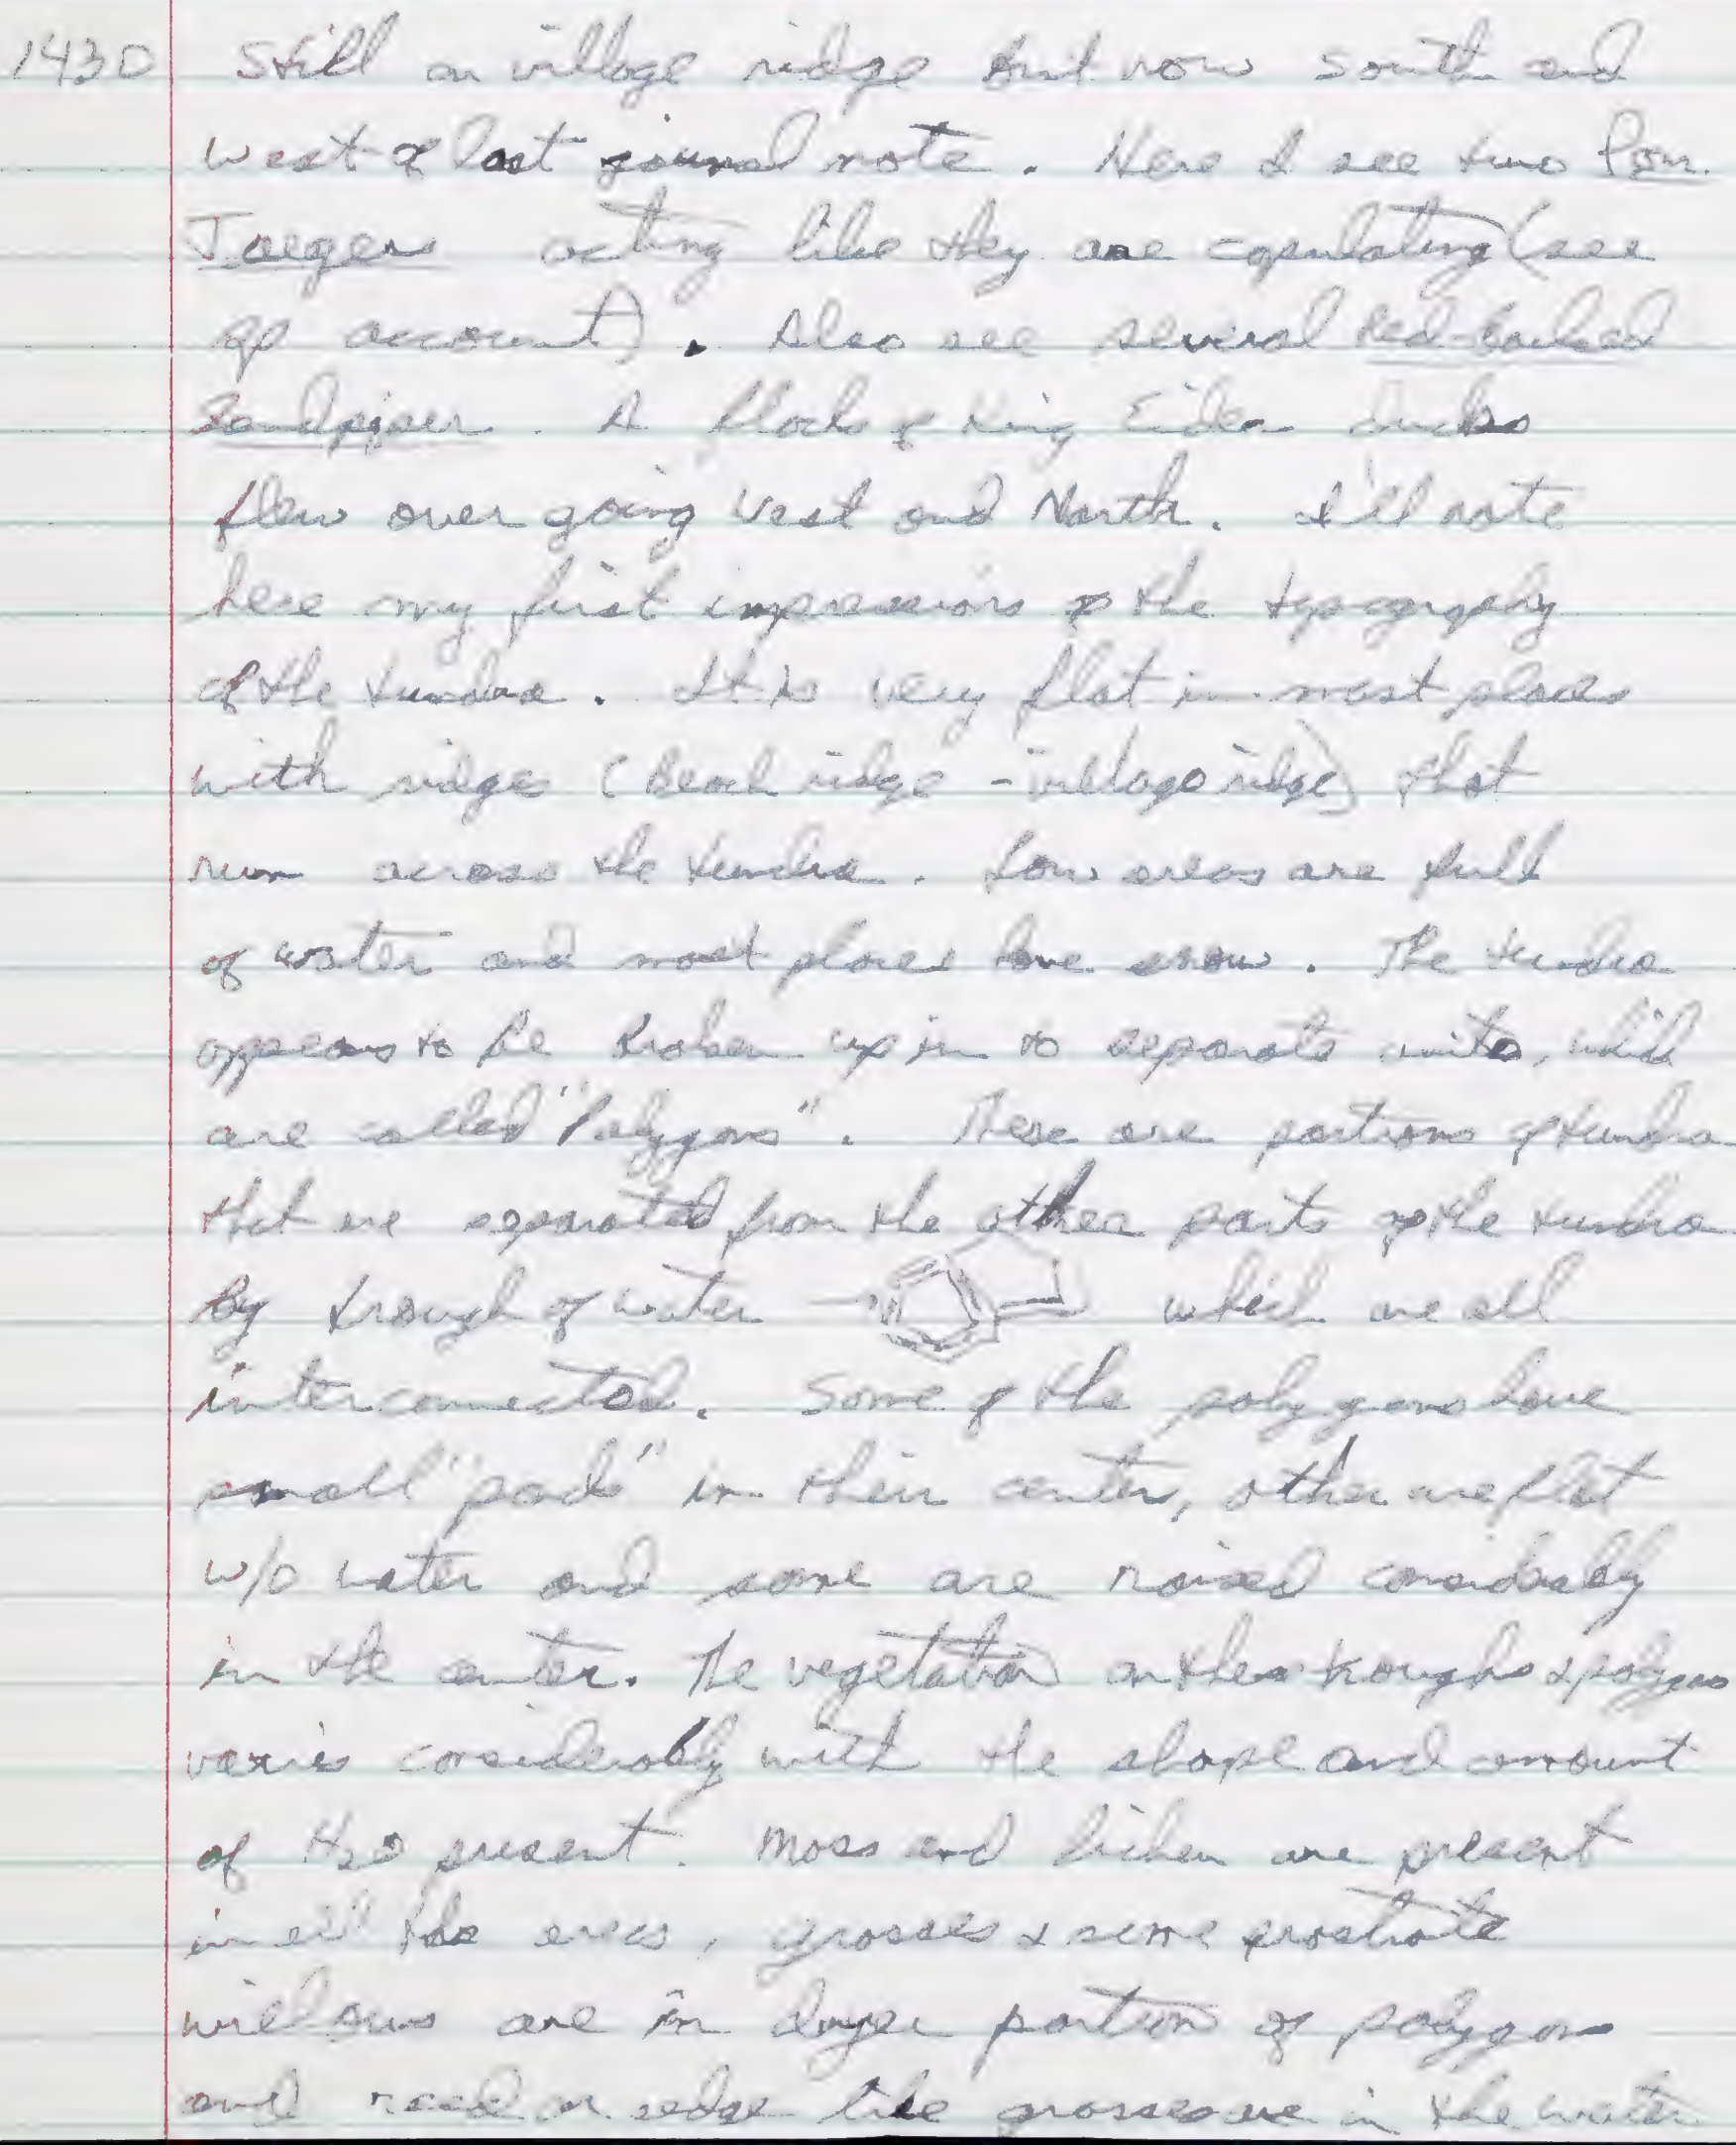 1430 Still on village ridge but now south and
west of last journal note. Here I see two Pom.
Jaegers acting like they are copulating (see
sp account). Also see several Red-backed
Sandpiper. A flock of King Eider ducks
flew over going West and North. I'll note
here my first impressions of the typography
of the tundra. It is very flat in most places
with ridges (Beach ridge - village ridge) that
run across the tundra. Low areas are full
of water and most places have snow. The tundra
appears to be broken up in to separate units, which
are called "Polygons". These are portions of tundra
that are separated from the other parts of the tundra
by trough of water which are all
interconnected. Some of the polygons have
small "ponds" in their center, other are flat
w/o water and some are raised considerably
in the center. The vegetation on the troughs & polygons
varies considerably with the slope and amount
of H2O present. Moss and lichen are present
in all the areas, grasses & some prostrate
willows are in dryer portion of polygon
and reed or sedge like grasses are in the water